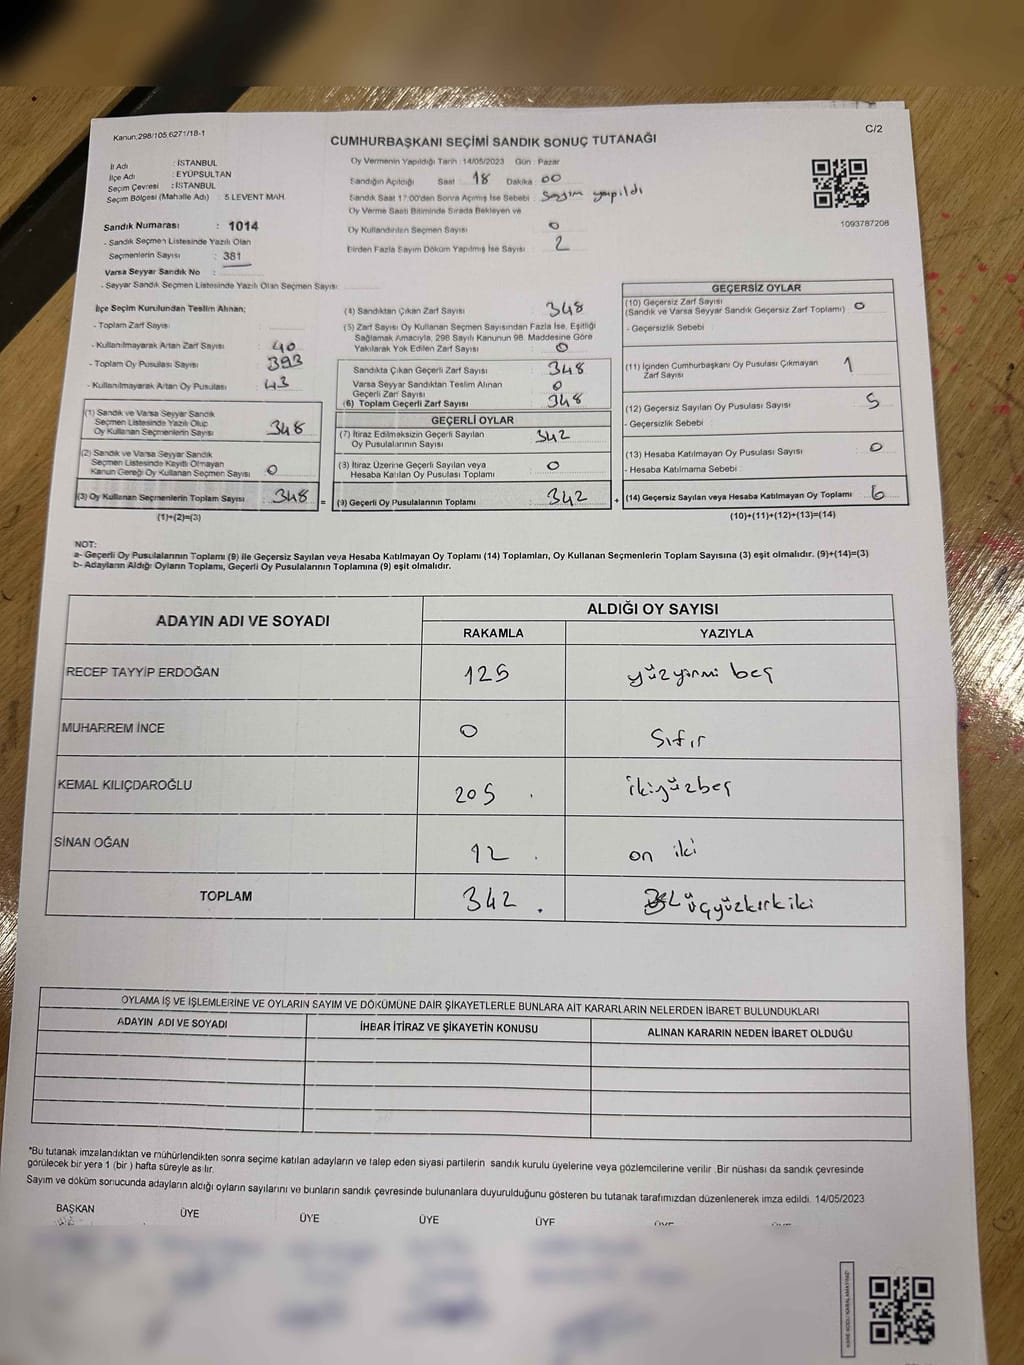 Kanun:298/105,6271/18-1
CUMHURBAŞKANI SEÇİMİ SANDIK SONUÇ TUTANAĞI
C/2
İl Adı : İSTANBUL
İlçe Adı : EYÜPSULTAN
Seçim Çevresi : İSTANBUL
Seçim Bölgesi (Mahalle Adı) : 5.LEVENT MAH.
Oy Vermenin Yapıldığı Tarih : 14/05/2023 Gün : Pazar
Sandığın Açıldığı Saat : 18 Dakika : 00
Sandık Saat 17:00'den Sonra Açımış İse Sebebi : Sayım yapıldı
Oy Verme Saati Bitiminde Sırada Bekleyen ve
Oy Kullandırılan Seçmen Sayısı : 0
Birden Fazla Sayım Döküm Yapılmış İse Sayısı : 2
1093787208
Sandık Numarası : 1014
- Sandık Seçmen Listesinde Yazılı Olan
Seçmenlerin Sayısı : 381
Varsa Seyyar Sandık No :
- Seyyar Sandık Seçmen Listesinde Yazılı Olan Seçmen Sayısı :
İlçe Seçim Kurulundan Teslim Alınan;
- Toplam Zarf Sayısı :
- Kullanılmayarak Artan Zarf Sayısı : 40
- Toplam Oy Pusulası Sayısı : 393
- Kullanılmayarak Artan Oy Pusulası : 43
(1) Sandık ve Varsa Seyyar Sandık
Seçmen Listesinde Yazılı Olup
Oy Kullanan Seçmenlerin Sayısı : 348
(2) Sandık ve Varsa Seyyar Sandık
Seçmen Listesinde Kayıtlı Olmayan
Kanun Gereği Oy Kullanan Seçmen Sayısı : 0
(3) Oy Kullanan Seçmenlerin Toplam Sayısı : 348 =
(1)+(2)=(3)
(4) Sandıktan Çıkan Zarf Sayısı : 348
(5) Zarf Sayısı Oy Kullanan Seçmen Sayısından Fazla İse, Eşitliği
Sağlamak Amacıyla, 298 Sayılı Kanunun 98. Maddesine Göre
Yakılarak Yok Edilen Zarf Sayısı : 0
Sandıkta Çıkan Geçerli Zarf Sayısı : 348
Varsa Seyyar Sandıktan Teslim Alınan
Geçerli Zarf Sayısı : 0
(6) Toplam Geçerli Zarf Sayısı : 348
GEÇERLİ OYLAR
(7) İtiraz Edilmeksizin Geçerli Sayılan
Oy Pusulalarının Sayısı : 342
(8) İtiraz Üzerine Geçerli Sayılan veya
Hesaba Katılan Oy Pusulası Toplamı : 0
(9) Geçerli Oy Pusulalarının Toplamı : 342 +
GEÇERSİZ OYLAR
(10) Geçersiz Zarf Sayısı
(Sandık ve Varsa Seyyar Sandık Geçersiz Zarf Toplamı) : 0
- Geçersizlik Sebebi :
(11) İçinden Cumhurbaşkanı Oy Pusulası Çıkmayan
Zarf Sayısı : 1
(12) Geçersiz Sayılan Oy Pusulası Sayısı : 5
- Geçersizlik Sebebi :
(13) Hesaba Katılmayan Oy Pusulası Sayısı : 0
- Hesaba Katılmama Sebebi :
(14) Geçersiz Sayılan veya Hesaba Katılmayan Oy Toplamı : 6
(10)+(11)+(12)+(13)=(14)
NOT:
a- Geçerli Oy Pusulalarının Toplamı (9) ile Geçersiz Sayılan veya Hesaba Katılmayan Oy Toplamı (14) Toplamları, Oy Kullanan Seçmenlerin Toplam Sayısına (3) eşit olmalıdır. (9)+(14)=(3)
b- Adayların Aldığı Oyların Toplamı, Geçerli Oy Pusulalarının Toplamına (9) eşit olmalıdır.
ADAYIN ADI VE SOYADI
ALDIĞI OY SAYISI
RAKAMLA YAZIYLA
RECEP TAYYİP ERDOĞAN 125 yüzyirmi beş
MUHARREM İNCE 0 Sıfır
KEMAL KILIÇDAROĞLU 205 ikiyüzbeş
SİNAN OĞAN 12 on iki
TOPLAM 342 üçyüzkırkiki
OYLAMA İŞ VE İŞLEMLERİNE VE OYLARIN SAYIM VE DÖKÜMÜNE DAİR ŞİKAYETLERLE BUNLARA AİT KARARLARIN NELERDEN İBARET BULUNDUKLARI
ADAYIN ADI VE SOYADI İHBAR İTİRAZ VE ŞİKAYETİN KONUSU ALINAN KARARIN NEDEN İBARET OLDUĞU
*Bu tutanak imzalandıktan ve mühürlendikten sonra seçime katılan adayların ve talep eden siyasi partilerin sandık kurulu üyelerine veya gözlemcilerine verilir .Bir nüshası da sandık çevresinde
görülecek bir yere 1 (bir ) hafta süreyle asılır.
Sayım ve döküm sonucunda adayların aldığı oyların sayılarını ve bunların sandık çevresinde bulunanlara duyurulduğunu gösteren bu tutanak tarafımızdan düzenlenerek imza edildi. 14/05/2023
BAŞKAN ÜYE ÜYE ÜYE ÜYE